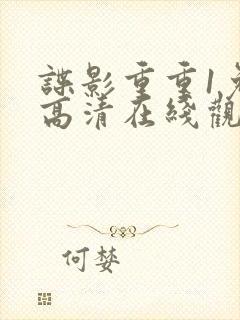 諜影重重1免
高清在綫觀
何婪